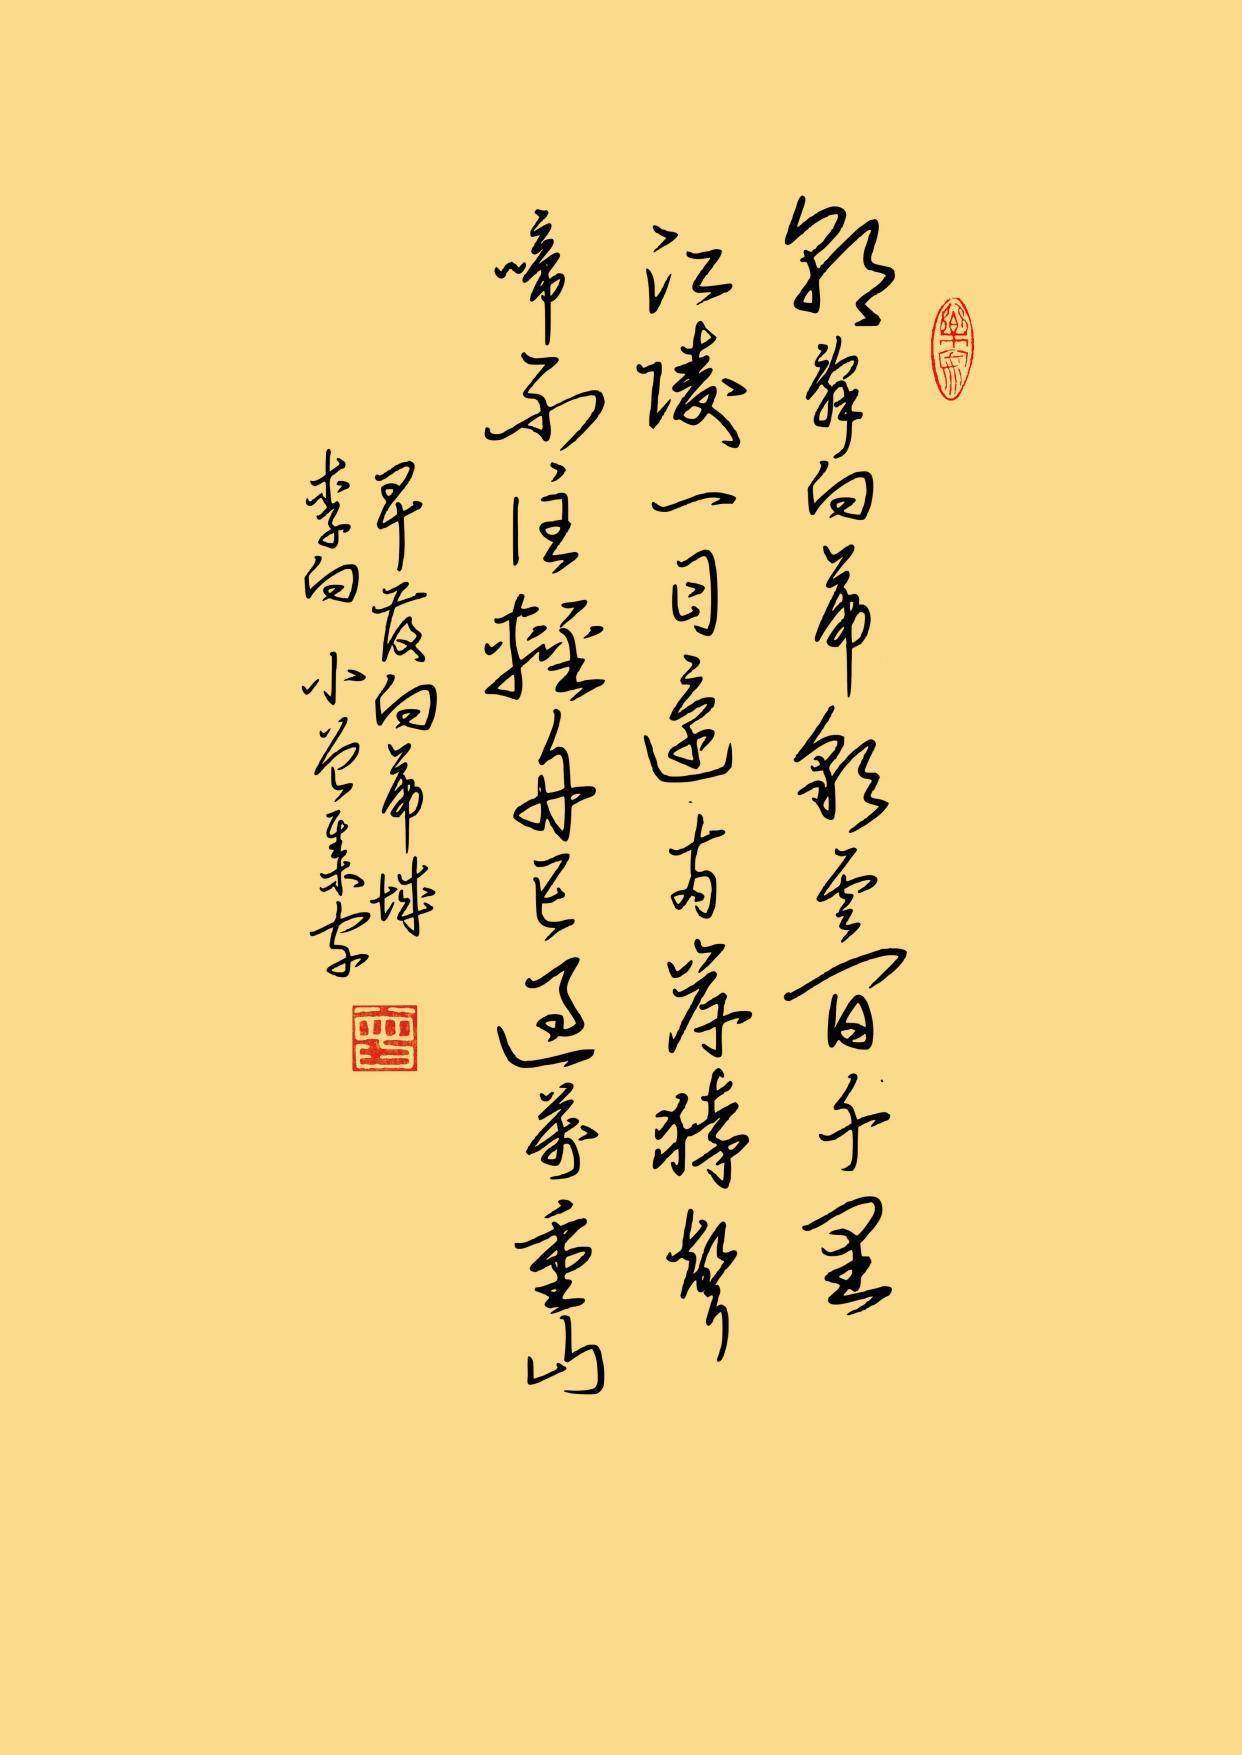 朝辞白帝彩雲间千里
江陵一日還两岸猿聲
啼不住輕舟已過萬重山
早发白帝城
李白 小曾集字